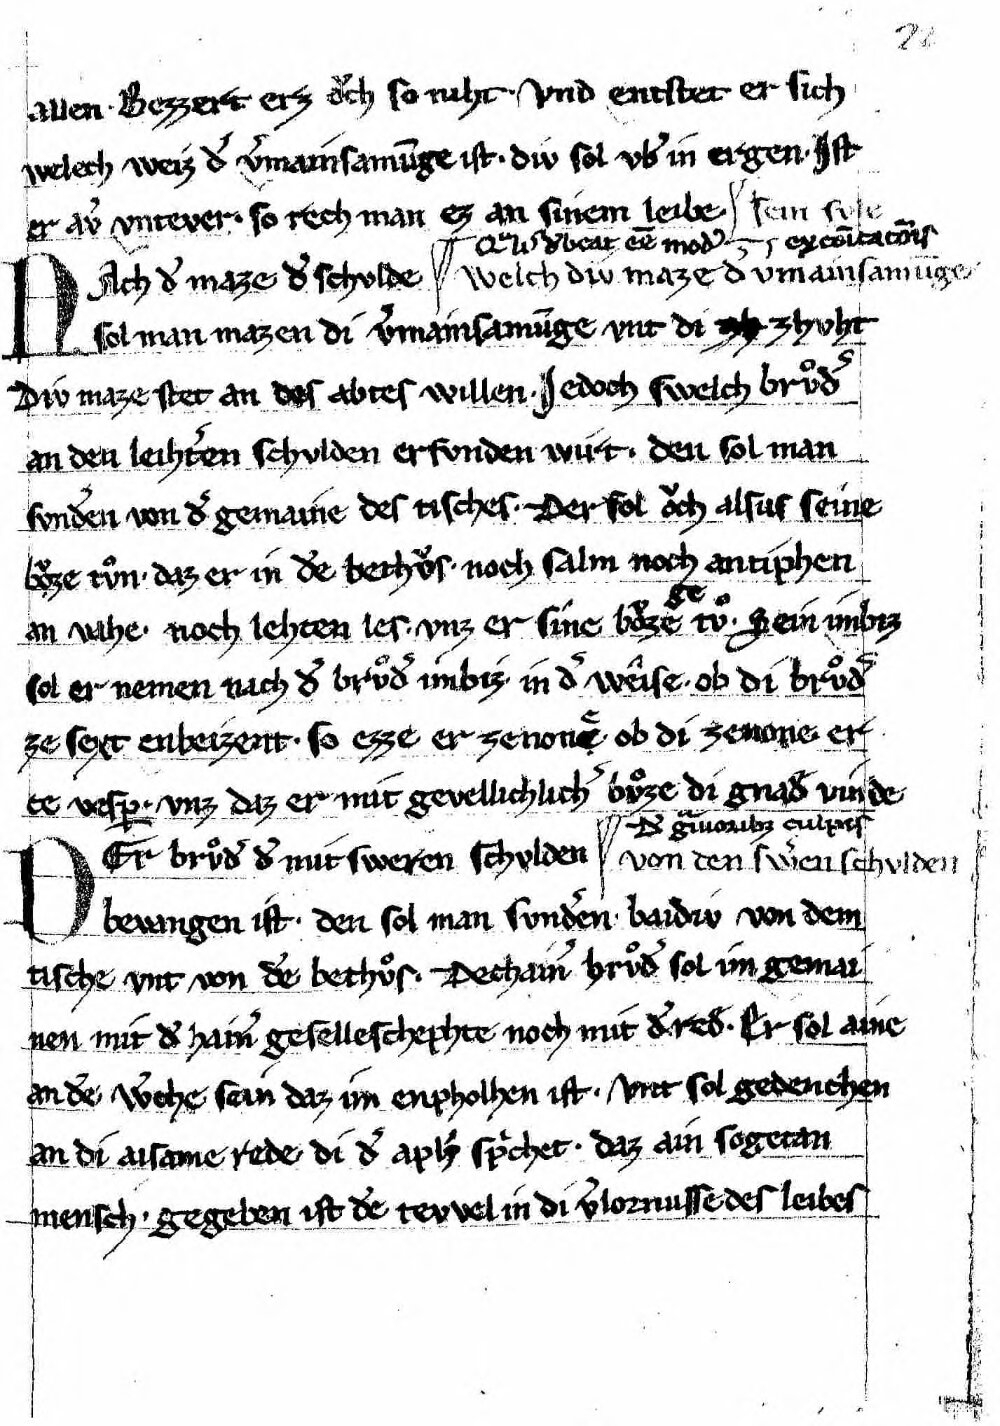 allen. Bezzert erz dͮch so niht. Vnd entstet er sich
welech weiz d͛ v͛mainsamūge ist. div sol vb͛ in ergen. Ist
er av͛ vntever. so rech man ez an sinem leibe. sein svle
Qͣlis debeat eē mod͛ excōicatōis
NAch d͛ maze d͛ schvlde welch div maze d͛ vmainsamūge
sol man mazen di v͛mainsamūge vnt di zhvht
Div maze stet an des abtes willen. Jedoch swelch brvͦd͛
an den leiht͛en schvlden erfvnden wirt. den sol man
svnd͛en von d͛ gemaine des tisches. Der sol oͮch alsus seine
bvͦze tvͦn. daz er in de bethvͦs. noch salm noch antiphen
an vahe. noch lehten les. vnz er sine bvͦze ge tvͦ. Sein imbiz
sol er nemen nach d͛ brvͦd͛ imbiz. in d͛ weise. ob di brvͦd͛
ze sext enbeizent. so ezze er zenone. ob di zenone er
ce vesp. vnz daz er mit gevellichlich͛ bvͦze di gnad͛ vinde
De gͣuiorib⁊ culpis
DEr brvͦd͛ d͛ mit sweren schvlden von den sw͛en schvlden
bevangen ist. den sol man svnd͛en. baidiv von dem
tische vnt von de bethvͦs. Dechain͛ brvͦd͛ sol im gemai
nen mit d͛hain͛ geselleschephte noch mit d͛ red͛. Er sol aine
an de w͛che sein daz im enpholhen ist. Vnt sol gedenchen
an di aisame rede di d͛ aplꝰ sp͛chet. daz ain sogetan
mensch. gegeben ist de tevvel in di v͛lornusse des leibes